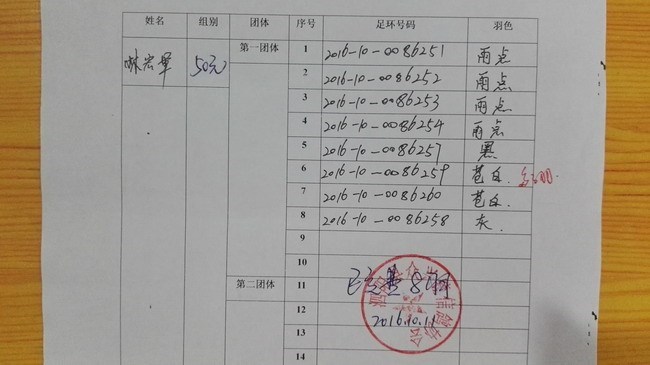 姓名 组别 团体 序号 足环号码 羽色
林宏军 50元 第一团体 1 2016-10-0086251 雨点
2 2016-10-0086252 雨点
3 2016-10-0086253 雨点
4 2016-10-0086254 雨点
5 2016-10-0086257 黑
6 2016-10-0086259 苍白.
7 2016-10-0086260 苍白.
8 2016-10-0086258 灰.
9
10
第二团体 11 8羽
12 2016.10.11
13
14